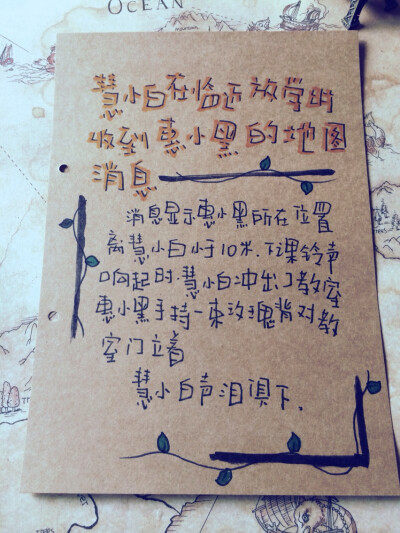 OCEAN
慧小白在临近放学时
收到惠小黑的地图
消息
消息显示惠小黑所在位置
离慧小白小于10米.下课铃声
响起时.慧小白冲出了教室
惠小黑手持一束玫瑰背对教
室门立着
慧小白声泪俱下.